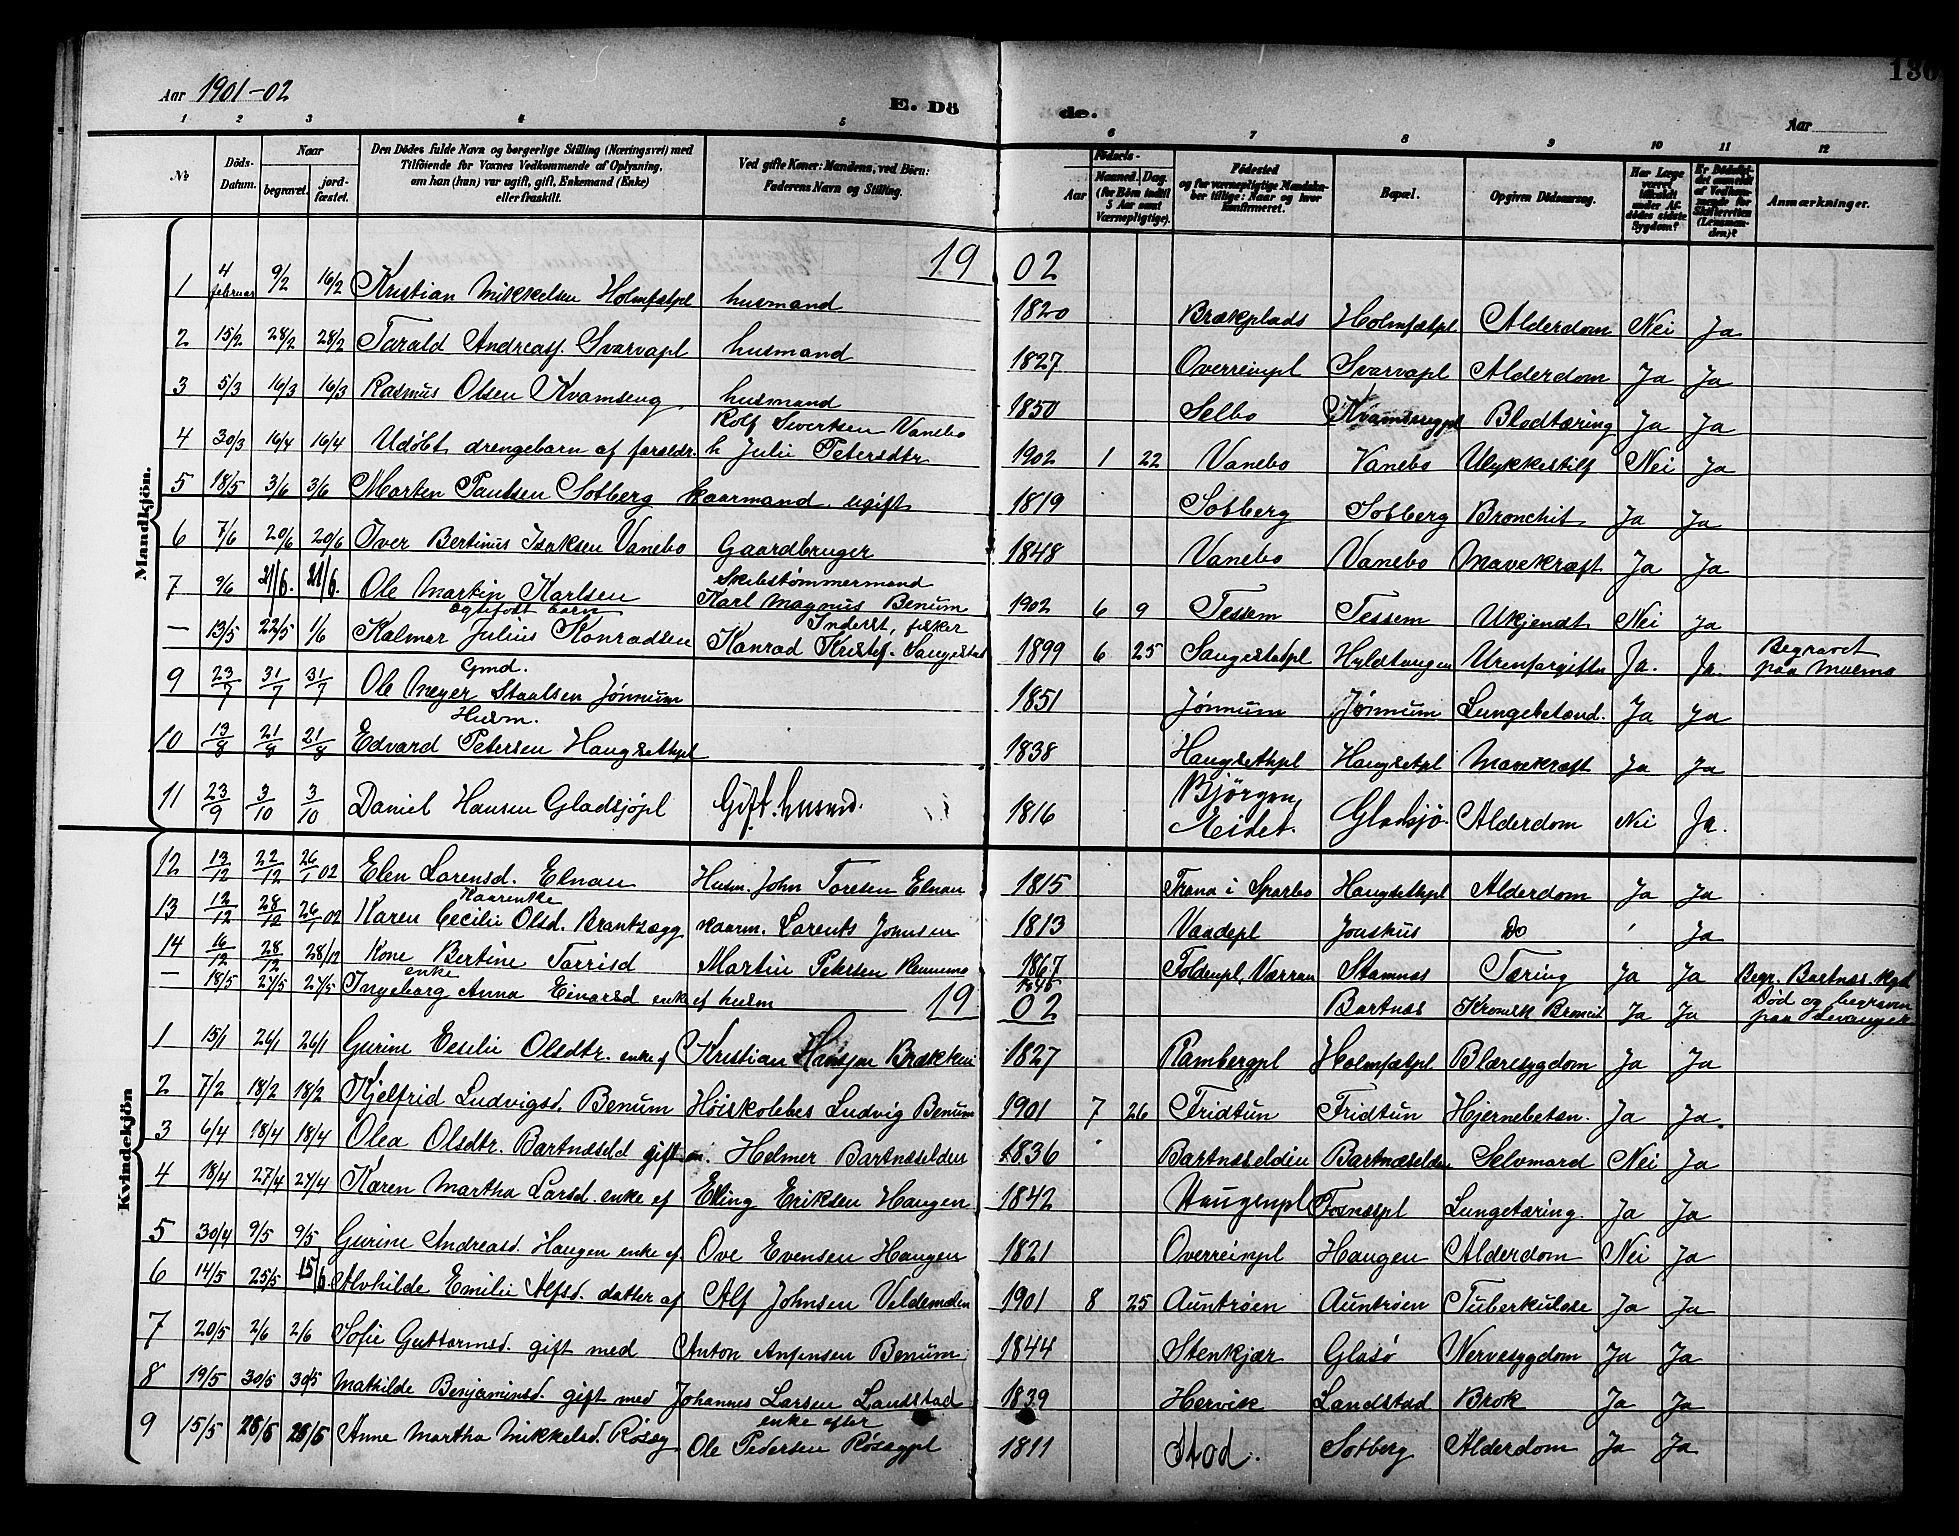 Aar 1901-02
E. Dö
de.
130
Aar
1 2 3 4 5 6 7 8 9 10 11 12
№
Döds-Datum.
Naar
begravet.
jordfæstet.
Den Dödes fulde Navn og borgerlige Stilling (Næringsvei) med
Tilföiende for Voxnes Vedkommende af Oplysning,
om han (hun) var ugift, gift, Enkemand (Enke)
eller fraskilt.
Ved gifte Koner: Mandens, ved Börn:
Faderens Navn og Stilling.
Födsels-
Aar
Maaned. Dag.
(for Börn indtil
5 Aar samt
Værnepligtige).
Födested
og for værnepligtige Mandskaber tillige: Naar og hvor
konfirmeret.
Bopæl.
Opgiven Dödsaarsag.
Har Læge
været
tilkaldt
under Afdödes sidste
Sygdom?
Er Dödsfaldet anmeldt
af Vedkommende for
Skifteretten
(Lensmanden)?
Anmærkninger.
Mandkjön.
1902
1 4 februar 9/2 16/2 Kristian Mikkelsen Holmsætpl husmand 1820 Brækplads Holmsætpl Alderdom Nei Ja
2 15/2 28/2 28/2 Tarald Andreass. Svarvapl husmand 1827 Overreinpl Svarvapl Alderdom Ja Ja
3 5/3 16/3 16/3 Rasmus Olsen Kvamseng husmand 1850 Selbo Kvamsengpl Blodtæring Ja Ja
Rolf Sivertsen Vanebo
4 30/3 16/4 16/4 Udøbt drengebarn af foreldr. h Julie Petersdtr 1902 1 22 Vanebo Vanebo Ulykkestilf Nei Ja
5 18/5 3/6 3/6 Morten Paulsen Solberg kaarmand ugift 1819 Solberg Solberg Bronchit Ja Ja
6 7/6 20/6 20/6 Iver Bertinus Isaksen Vanebo Gaardbruger 1848 Vanebo Vanebo Mavekræft Ja Ja
Skibstømmermand
7 9/6 21/6. 21/6. Ole Martin Karlsen Karl Magnus Benum 1902 6 9 Tessem Tessem Ukjendt Nei Ja
ægtefødt barn Inderst, fisker
— 13/5 22/5 1/6 Kalmar Julius Konradsen Konrad Kristof. Saugestad 1899 6 25 Saugestadpl Hyldtaugen Ja. Ja. Begravet paa Malmo
Gmd.
9 23/7 31/7 31/7 Ole Meyer Staalsen Jønnum 1851 Jønnum Jønnum Lungebetænd. Ja Ja
Husm.
10 13/8 21/8 21/8 Edvard Petersen Haugsetpl 1838 Haugsetpl Haugsetpl Mavekræft Ja Ja
11 23/9 3/10 3/10 Daniel Hansen Gladsjøpl Gift. husmd. 1816 Bjørgen, Eidet. Gladsjø. Alderdom Nei Ja.
Kvindekjön
12 13/12 22/12 26/1 02 Elen Larensd. Elnau Husm. John Toresen Elnau 1815 Trana i Sparbo Haugsetpl Alderdom Ja Ja
Kaarenke
13 12/12 28/12 26/1 02 Karen Cecilie Olsd. Brantzægg kaarm. Lorents Johnsen 1813 Vaadepl Jonshus Do Ja
14 16/12 28/12 28/12 Kone Bertine Torrisd Martin Petersen Rennemo 1867 Foldenpl, Værran Stamnas Tæring Ja Ja Begr. Bartnas. kgd
enke
— 18/5 27/5 27/5 Ingeborg Anna Einarsd enke ef husm 1845 Bartnæs Kronisk Broncit Ja Ja Død og begraven paa Levanger
1902
1 15/1 26/1 26/1 Gurine Eeselie Olsdtr. enke ef Kristian Hansen Brækken 1827 Rambergpl Holmsætpl Blæresygdom Ja Ja
2 7/2 18/2 18/2 Kjelfrid Ludvigsd. Benum Høiskolebes Ludvig Benum 1901 7 26 Fridtun Fridtun Hjernebetæn. Ja Ja.
3 6/4 18/4 18/4 Olea Olsdtr. Bartnæseld gift m. Helmer Bartnæselden 1836 Bartnæseldin Bartnæselden Selvmord Nei Ja
4 18/4 27/4 27/4 Karen Martha Larsd. enke ef Elling Eriksen Haugen 1842 Haugenpl Fosnæspl Lungetæring. Ja Ja
5 30/4 9/5 9/5 Gurine Andreasd. Haugen enke ef. Ove Evensen Haugen 1821 Overreinpl Haugen Alderdom Nei Ja
6 14/5 25/5 15/6. Alvhilde Emilie Alfsd. datter af Alf Johnsen Veldemelen 1901 8 25 Auntrøen Auntrøen Tuberkulose Ja Ja
7 20/5 2/6 2/6 Sofie Guttormsd. gift med Anton Anfinsen Benum 1844 Stenkjær Glasø Nervesygdom Ja Ja
8 19/5 30/5 30/5 Mathilde Benjaminsd. gift med Johannes Larsen Landstad 1839 Hervik Landstad Brok Ja Ja
enke efter
9 15/5 28/5 28/5 Anne Martha Mikkelsd. Røseg Ole Pedersen Røsegpl 1811 Stod. Solberg Alderdom Ja Ja